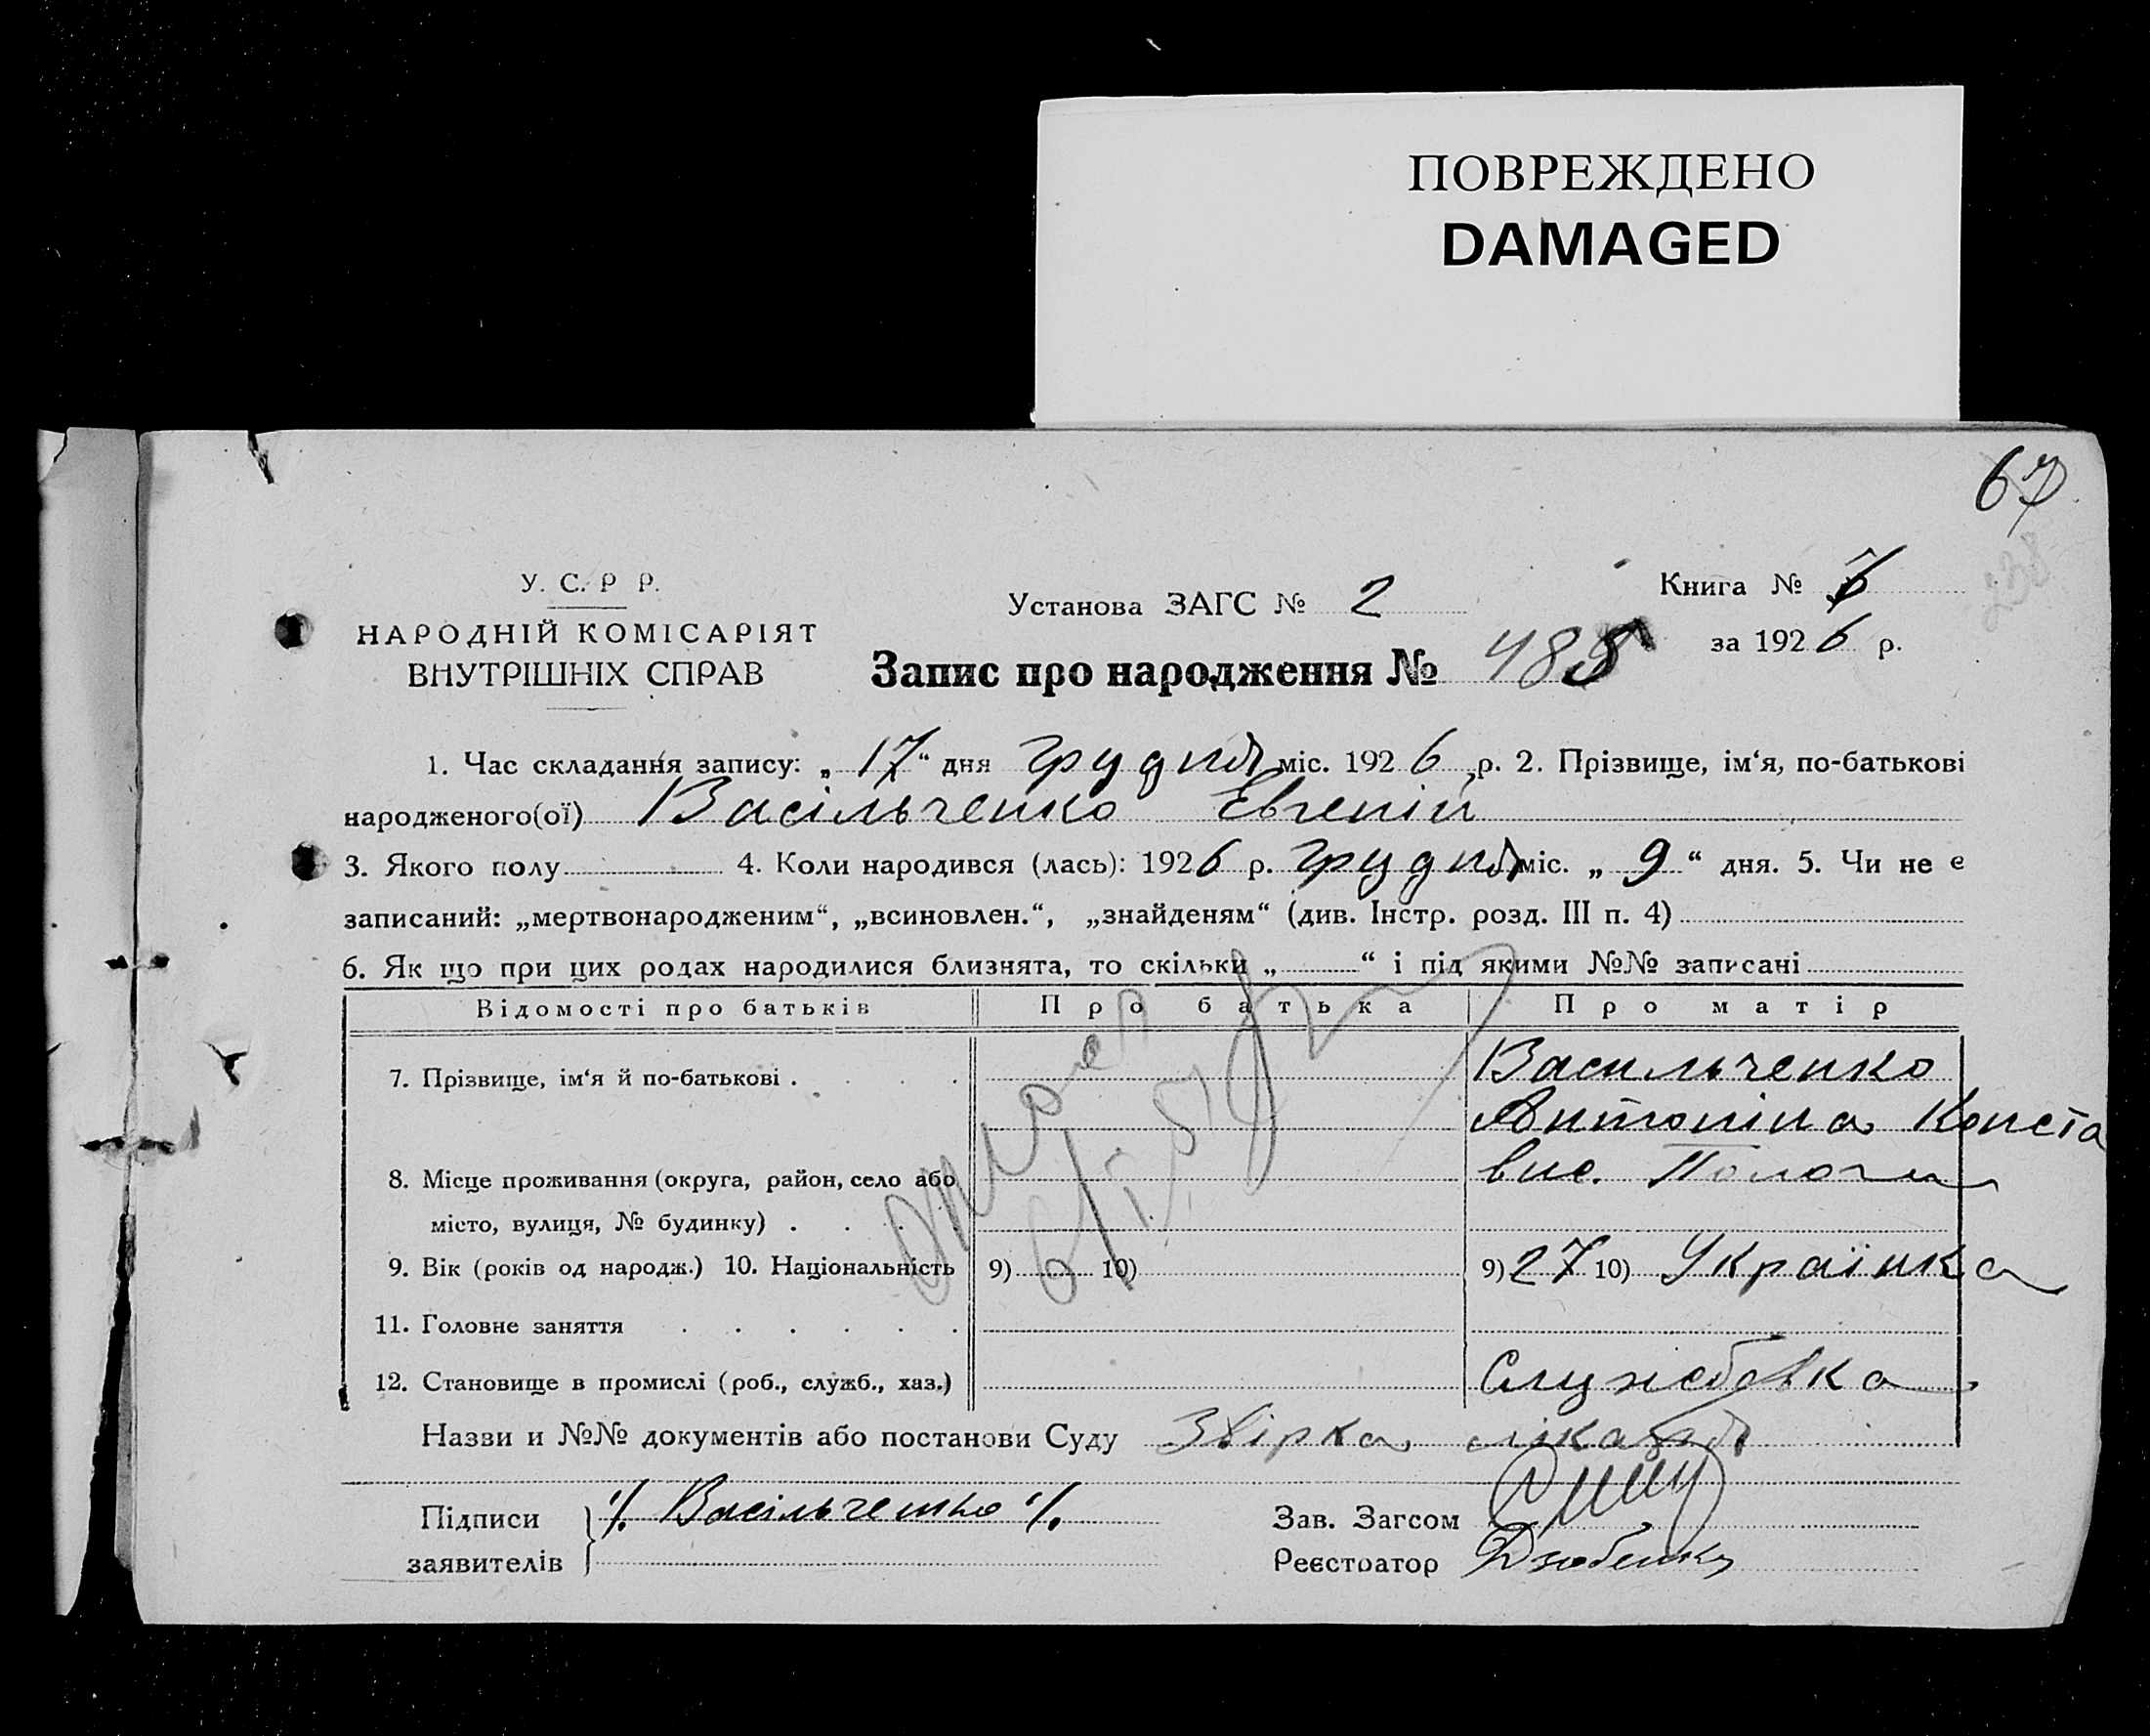 ПОВРЕЖДЕНО
DAMAGED
67
У. С. Р Р.
НАРОДНІЙ КОМІСАРІЯТ
ВНУТРІШНІХ СПРАВ
Установа ЗАГС № 2
Запис про народження № 485
Книга №
за 1926 р.
1. Час складання запису: „17“ дня грудня міс. 1926 р. 2. Прізвище, ім‘я, по-батькові
народженого(ої) Васільченко Евгеній
3. Якого полу 4. Коли народився (лась): 1926 р. грудня міс. „9“ дня. 5. Чи не є
записаний: „мертвонародженим“, „всиновлен.“, „знайденям“ (див. Інстр. розд. III п. 4)
6. Як що при цих родах народилися близнята, то скільки „ “ і під якими №№ записані
Відомості про батьків Про батька Про матір
7. Прізвище, ім‘я й по-батькові . . . . Васильченко
Антоніна Конста
8. Місце проживання (округа, район, село або вис. Пологи
місто, вулиця, № будинку) . . . .
9. Вік (років од народж.) 10. Національність 9) 10) 9) 27 10) Українка
11. Головне заняття . . . . . .
12. Становище в промислі (роб., служб., хаз.) Службовка
Назви и №№ документів або постанови Суду Звірка лікаря
Підписи /. Васільченко /.
заявителів
Зав. Загсом
Реєстратор Дзюбенко